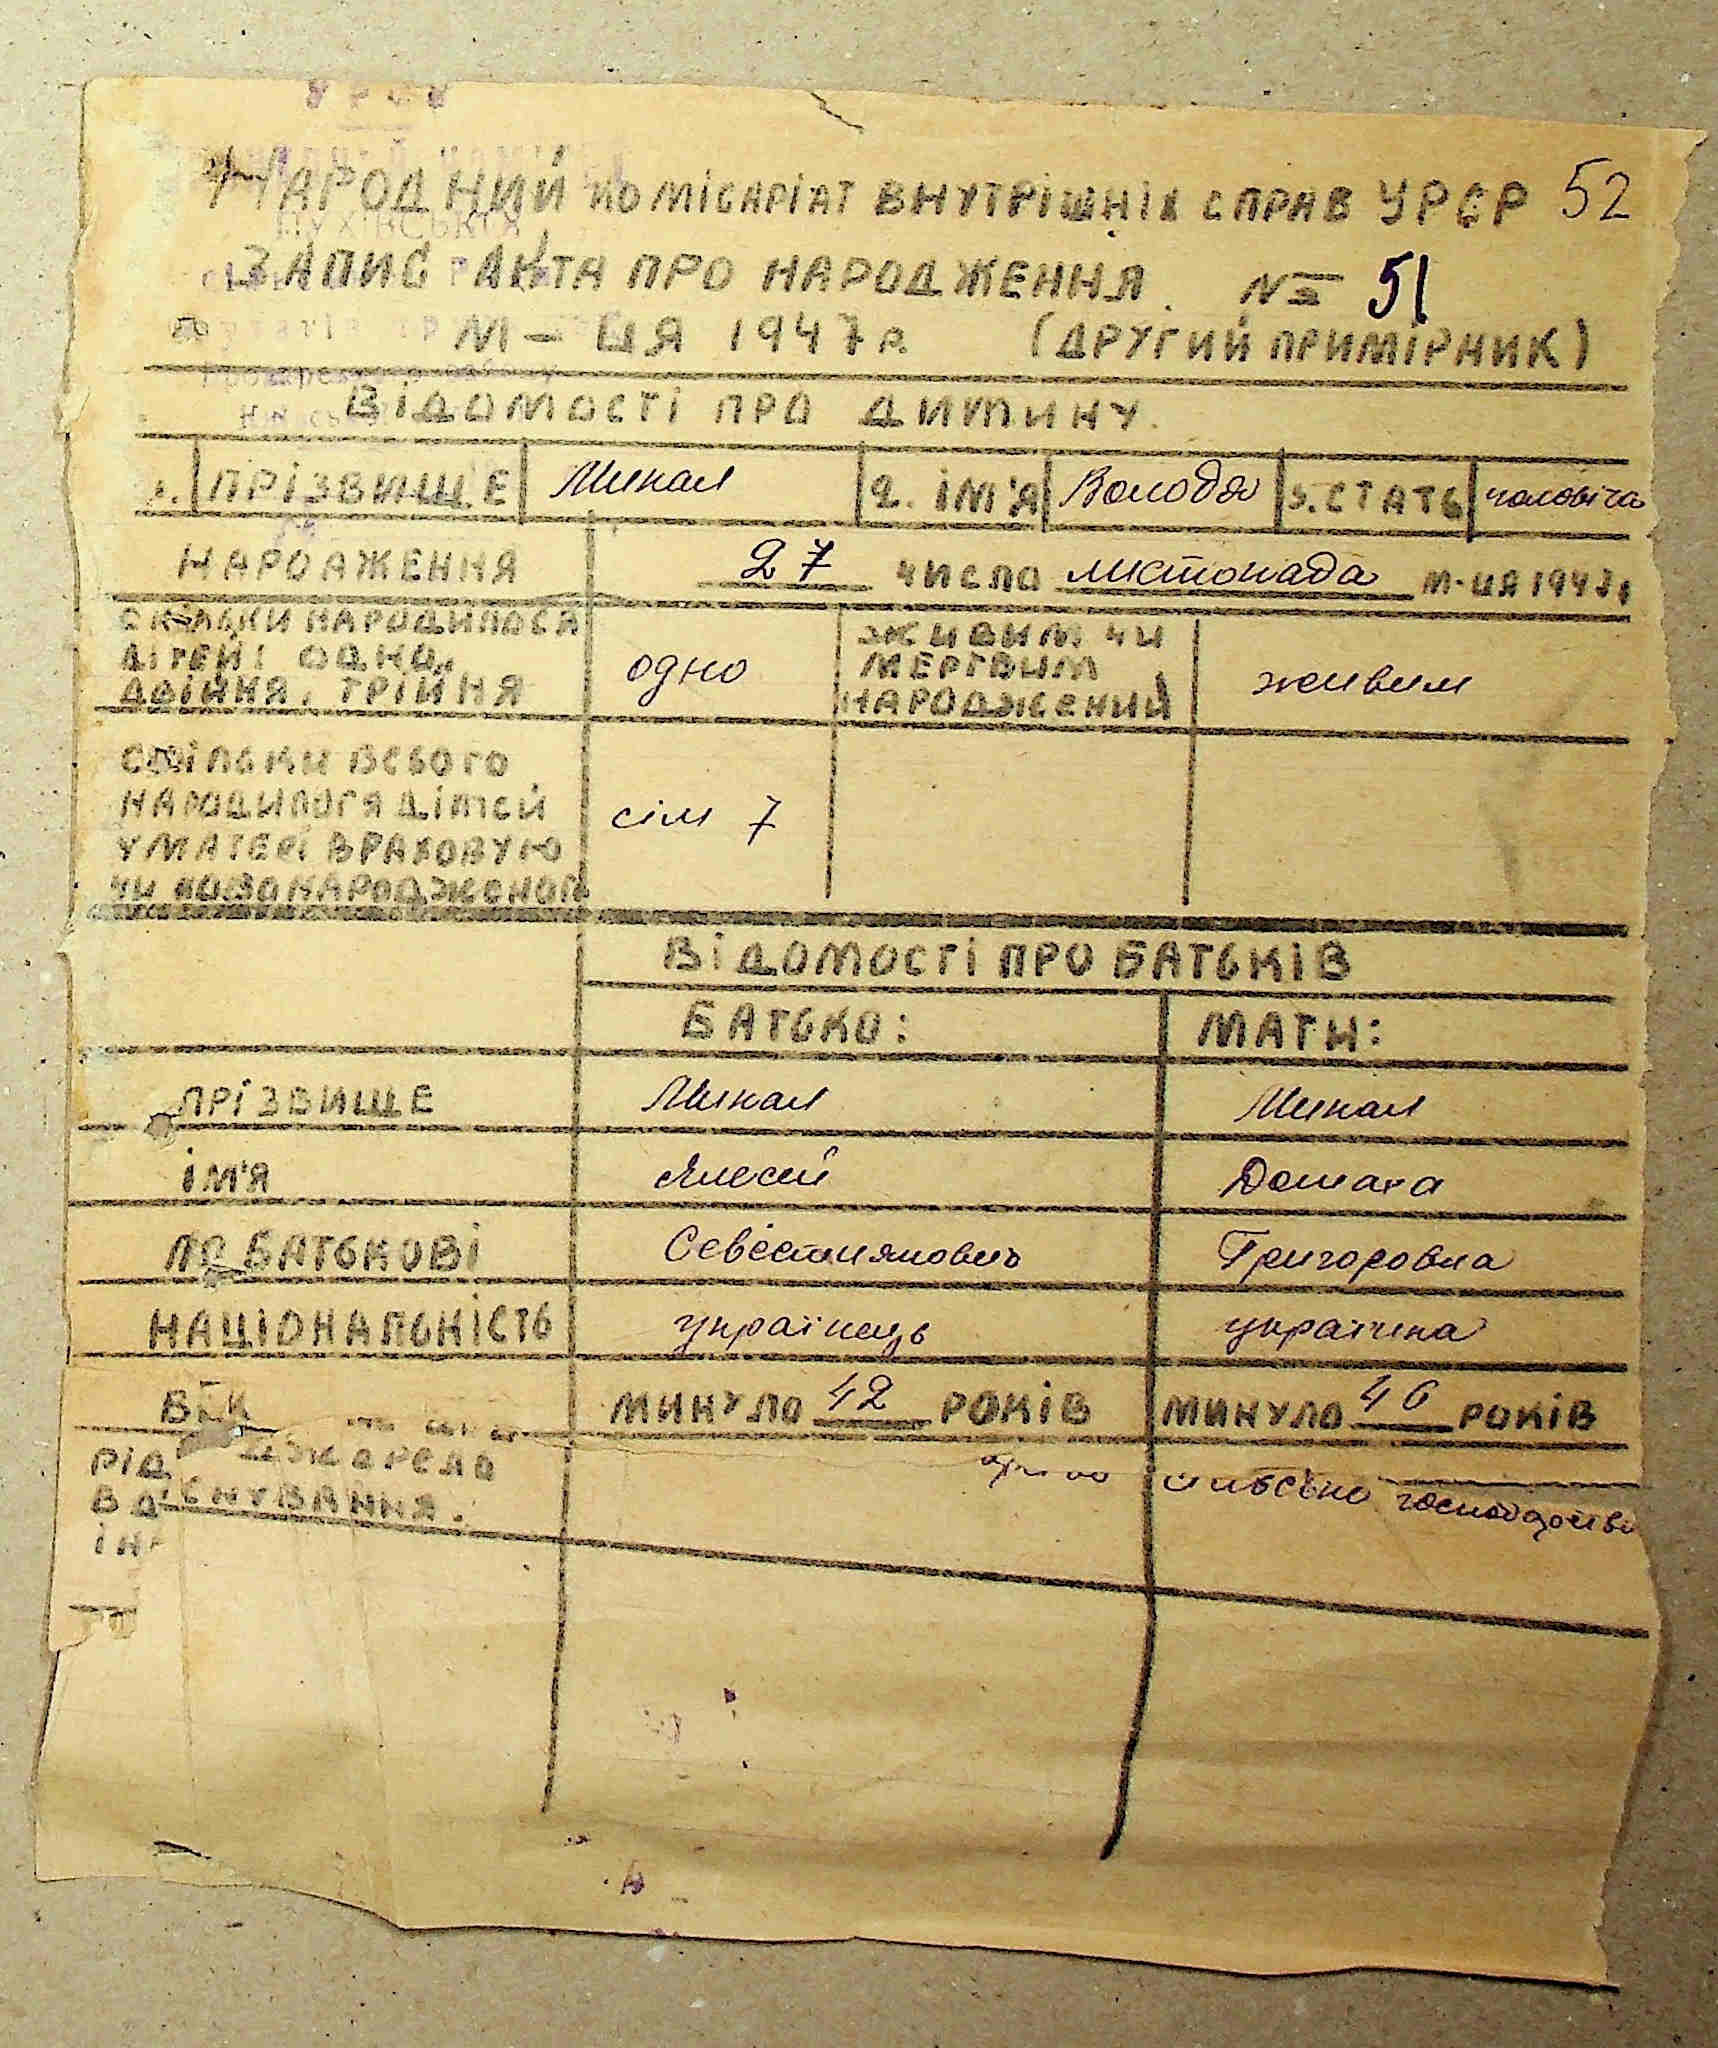 УРСР
НАРОДНИЙ КОМІСАРІАТ ВНУТРІШНІХ СПРАВ УРСР 52
ЗАПИС АКТА ПРО НАРОДЖЕННЯ. № 51
М-ЦЯ 1947 р. (ДРУГИЙ ПРИМІРНИК)
ВІДОМОСТІ ПРО ДИТИНУ.
1. ПРІЗВИЩЕ Минал 2. ІМ'Я Володя 3. СТАТЬ чоловіча
НАРОДЖЕННЯ 27 числа листопада м-ця 1947 р
СКІЛЬКИ НАРОДИЛОСЯ ЖИВИМ ЧИ
ДІТЕЙ: ОДНО, одно МЕРТВИМ живим
ДВІЙНЯ, ТРІЙНЯ НАРОДЖЕНИЙ
СКІЛЬКИ ВСЬОГО
НАРОДИЛОСЯ ДІТЕЙ сім 7
У МАТЕРІ ВРАХОВУЮ
ЧИ НОВОНАРОДЖЕНОГО
ВІДОМОСТІ ПРО БАТЬКІВ
БАТЬКО: МАТИ:
ПРІЗВИЩЕ Минал Минал
ІМ'Я Алесей Домаха
ПО БАТЬКОВІ Севестиянович Григоровна
НАЦІОНАЛЬНІСТЬ українець українка
ВІК МИНУЛО 42 РОКІВ МИНУЛО 46 РОКІВ
РІД ДЖЕРЕЛО сільське господарство
ІСНУВАННЯ.